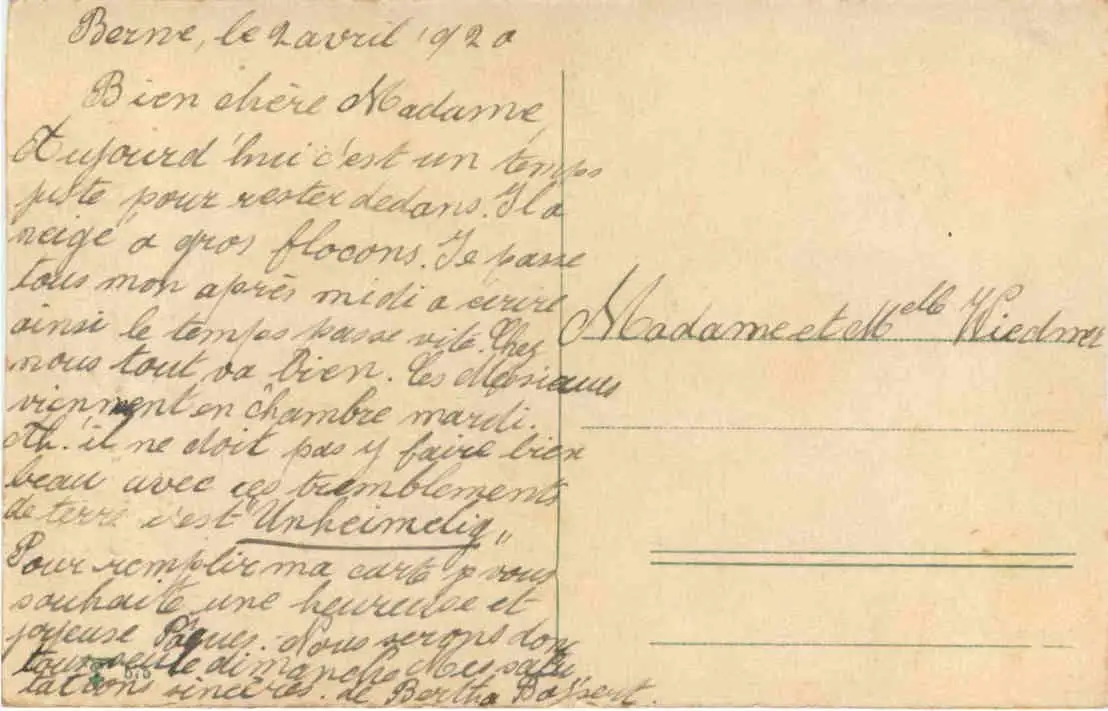 Berne, le 2 avril 1920
Bien chère Madame,
Aujourd'hui c'est un temps
juste pour rester dedans. Il a
neigé à gros flocons. Je passe
tous mon après midi a écrire
ainsi le temps passe vite. Chez
nous tout va bien. Les Messieurs
viennent en chambre mardi.
Ah. il ne doit pas y faire bien
beau avec ces tremblements
de terre c'est "Unheimelig"
Pour remplir ma carte je vous
souhaite une heureuse et
joyeuse Pâques. Nous serons donc
le dimanche Mes salu
tations sincères. de Bertha Bossert.
Madame et Melle Wiedmer